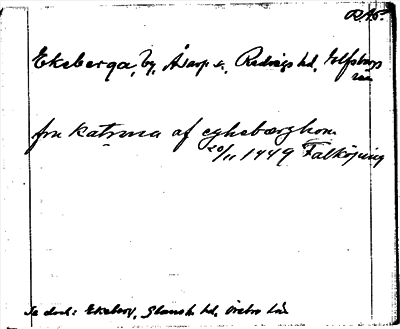 RAp.
Ekeberga, by, Åsarp s., Redvägs hd, Elfsborgs
län
fru katrina af ekebærghom
20/11 1449 Falköping
Se dock: Ekeberg, Glansh. hd, Örebro län